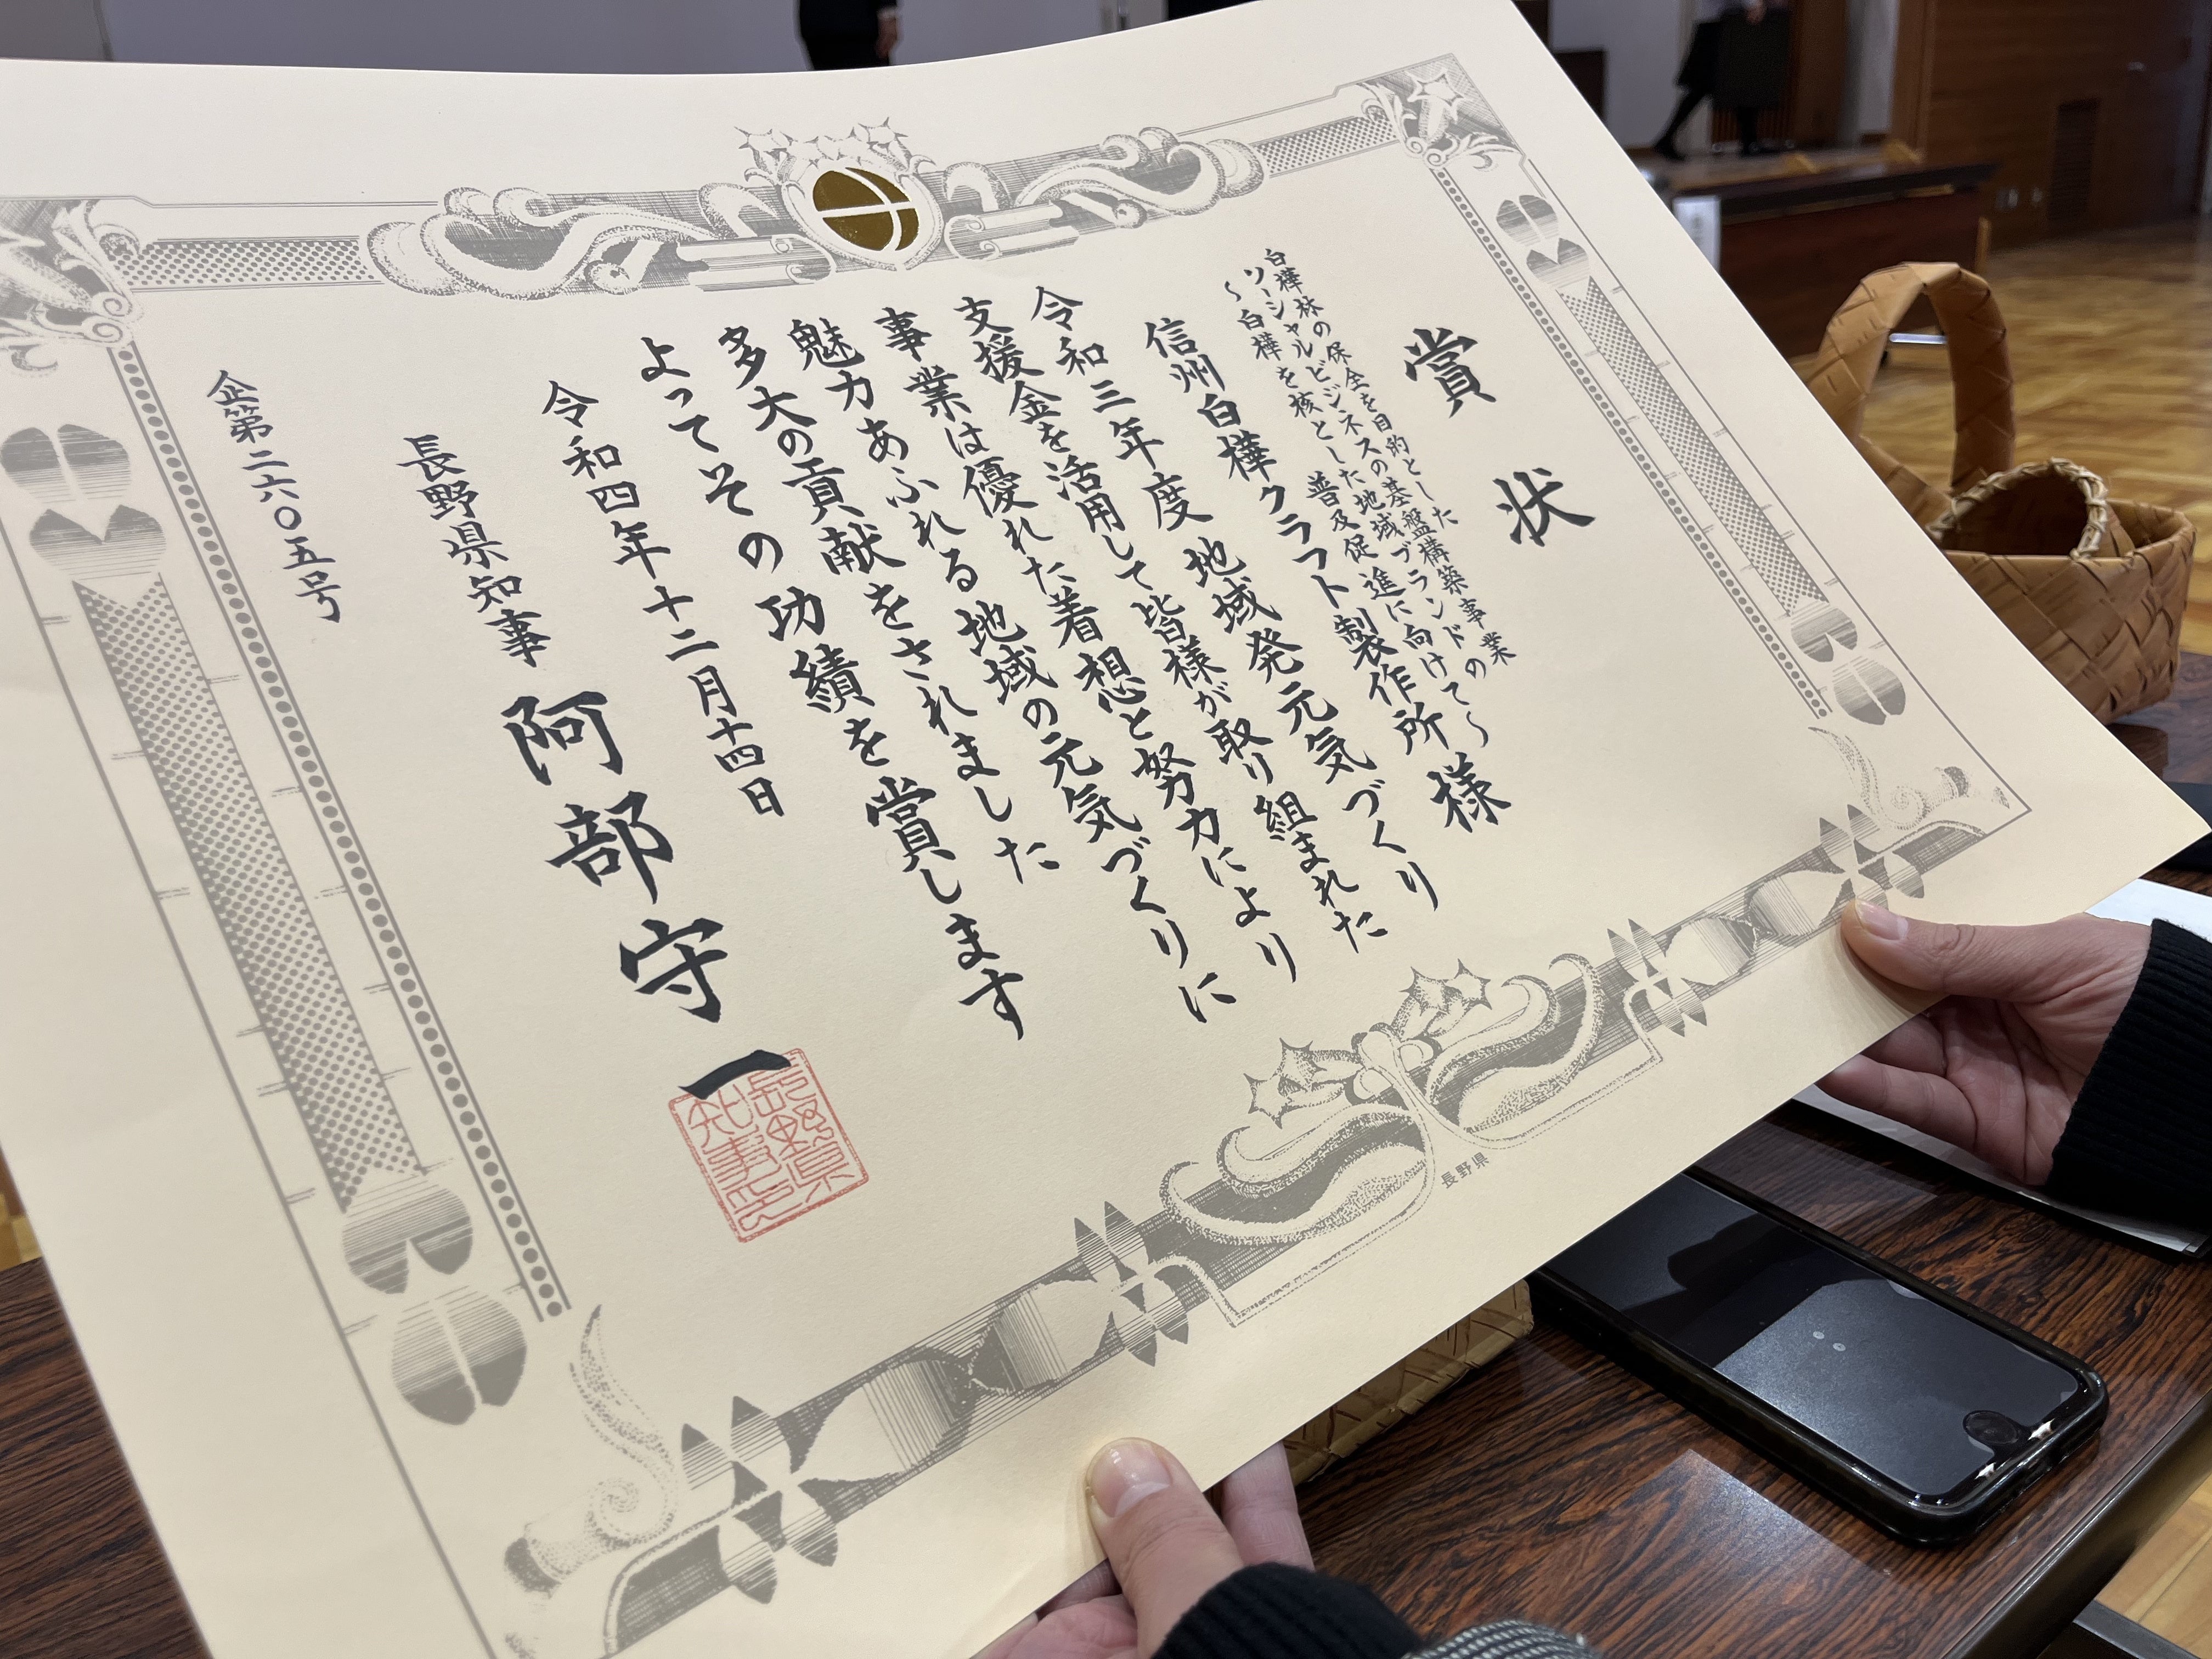 賞状
白樺林の保全を目的とした
ソーシャルビジネスの基盤構築事業
～白樺を核とした地域ブランドの
普及促進に向けて～
信州白樺クラフト製作所様
令和三年度地域発元気づくり
支援金を活用して皆様が取り組まれた
事業は優れた着想と努力により
魅力あふれる地域の元気づくりに
多大の貢献をされました
よってその功績を賞します
令和四年十二月十四日
長野県知事 阿部守一
長野県
知事印
企第二六〇五号
長野県